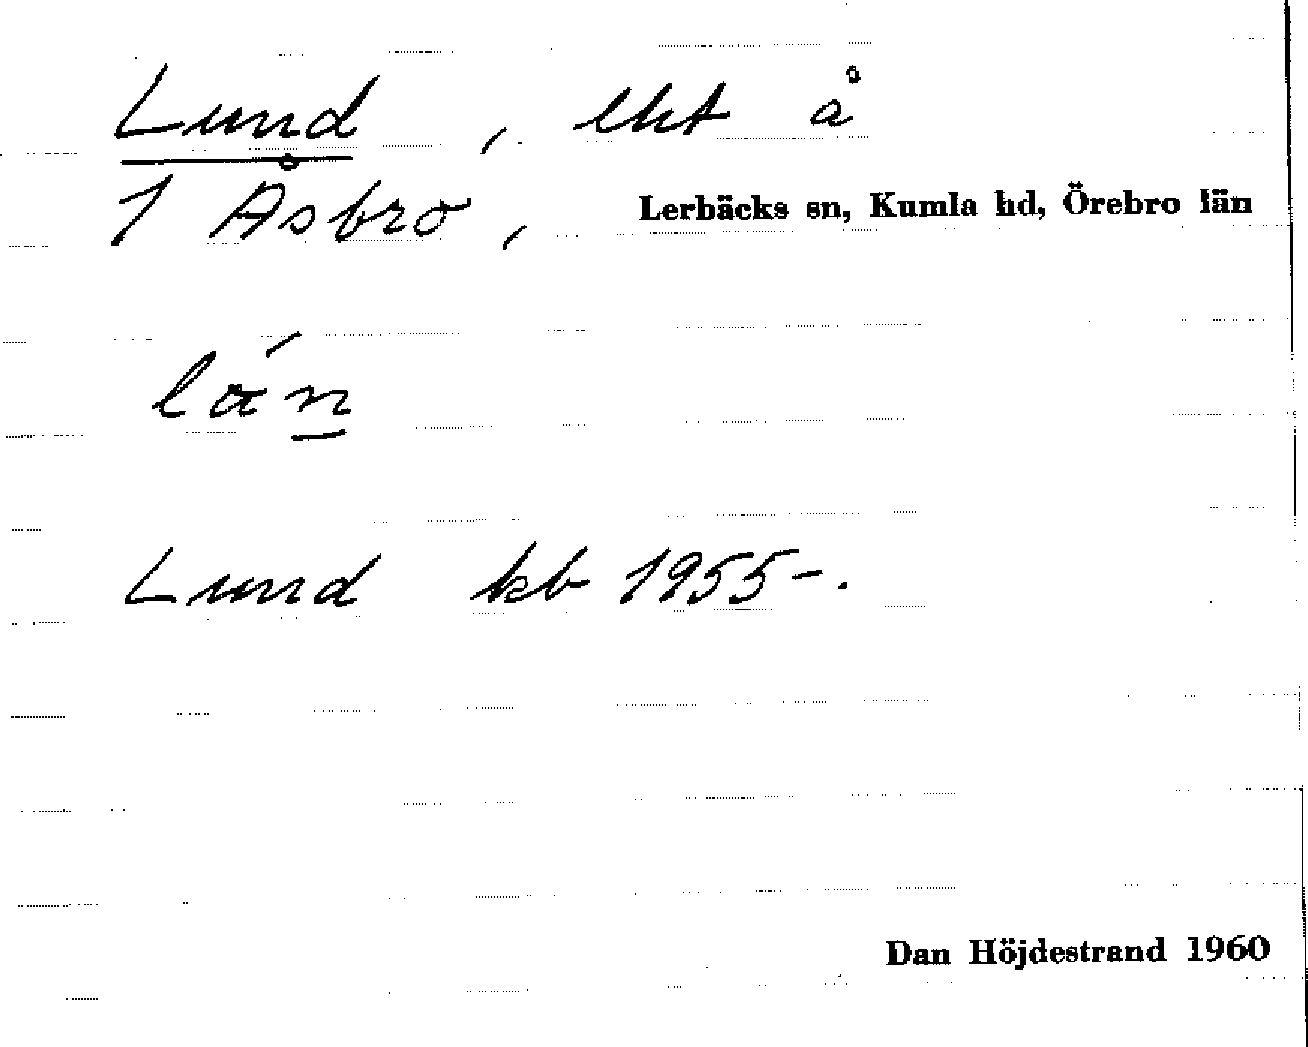 Lund, lht å
1 Åsbro, Lerbäcks sn, Kumla hd, Örebro län
Lund kb 1955-.
Dan Höjdestrand 1960